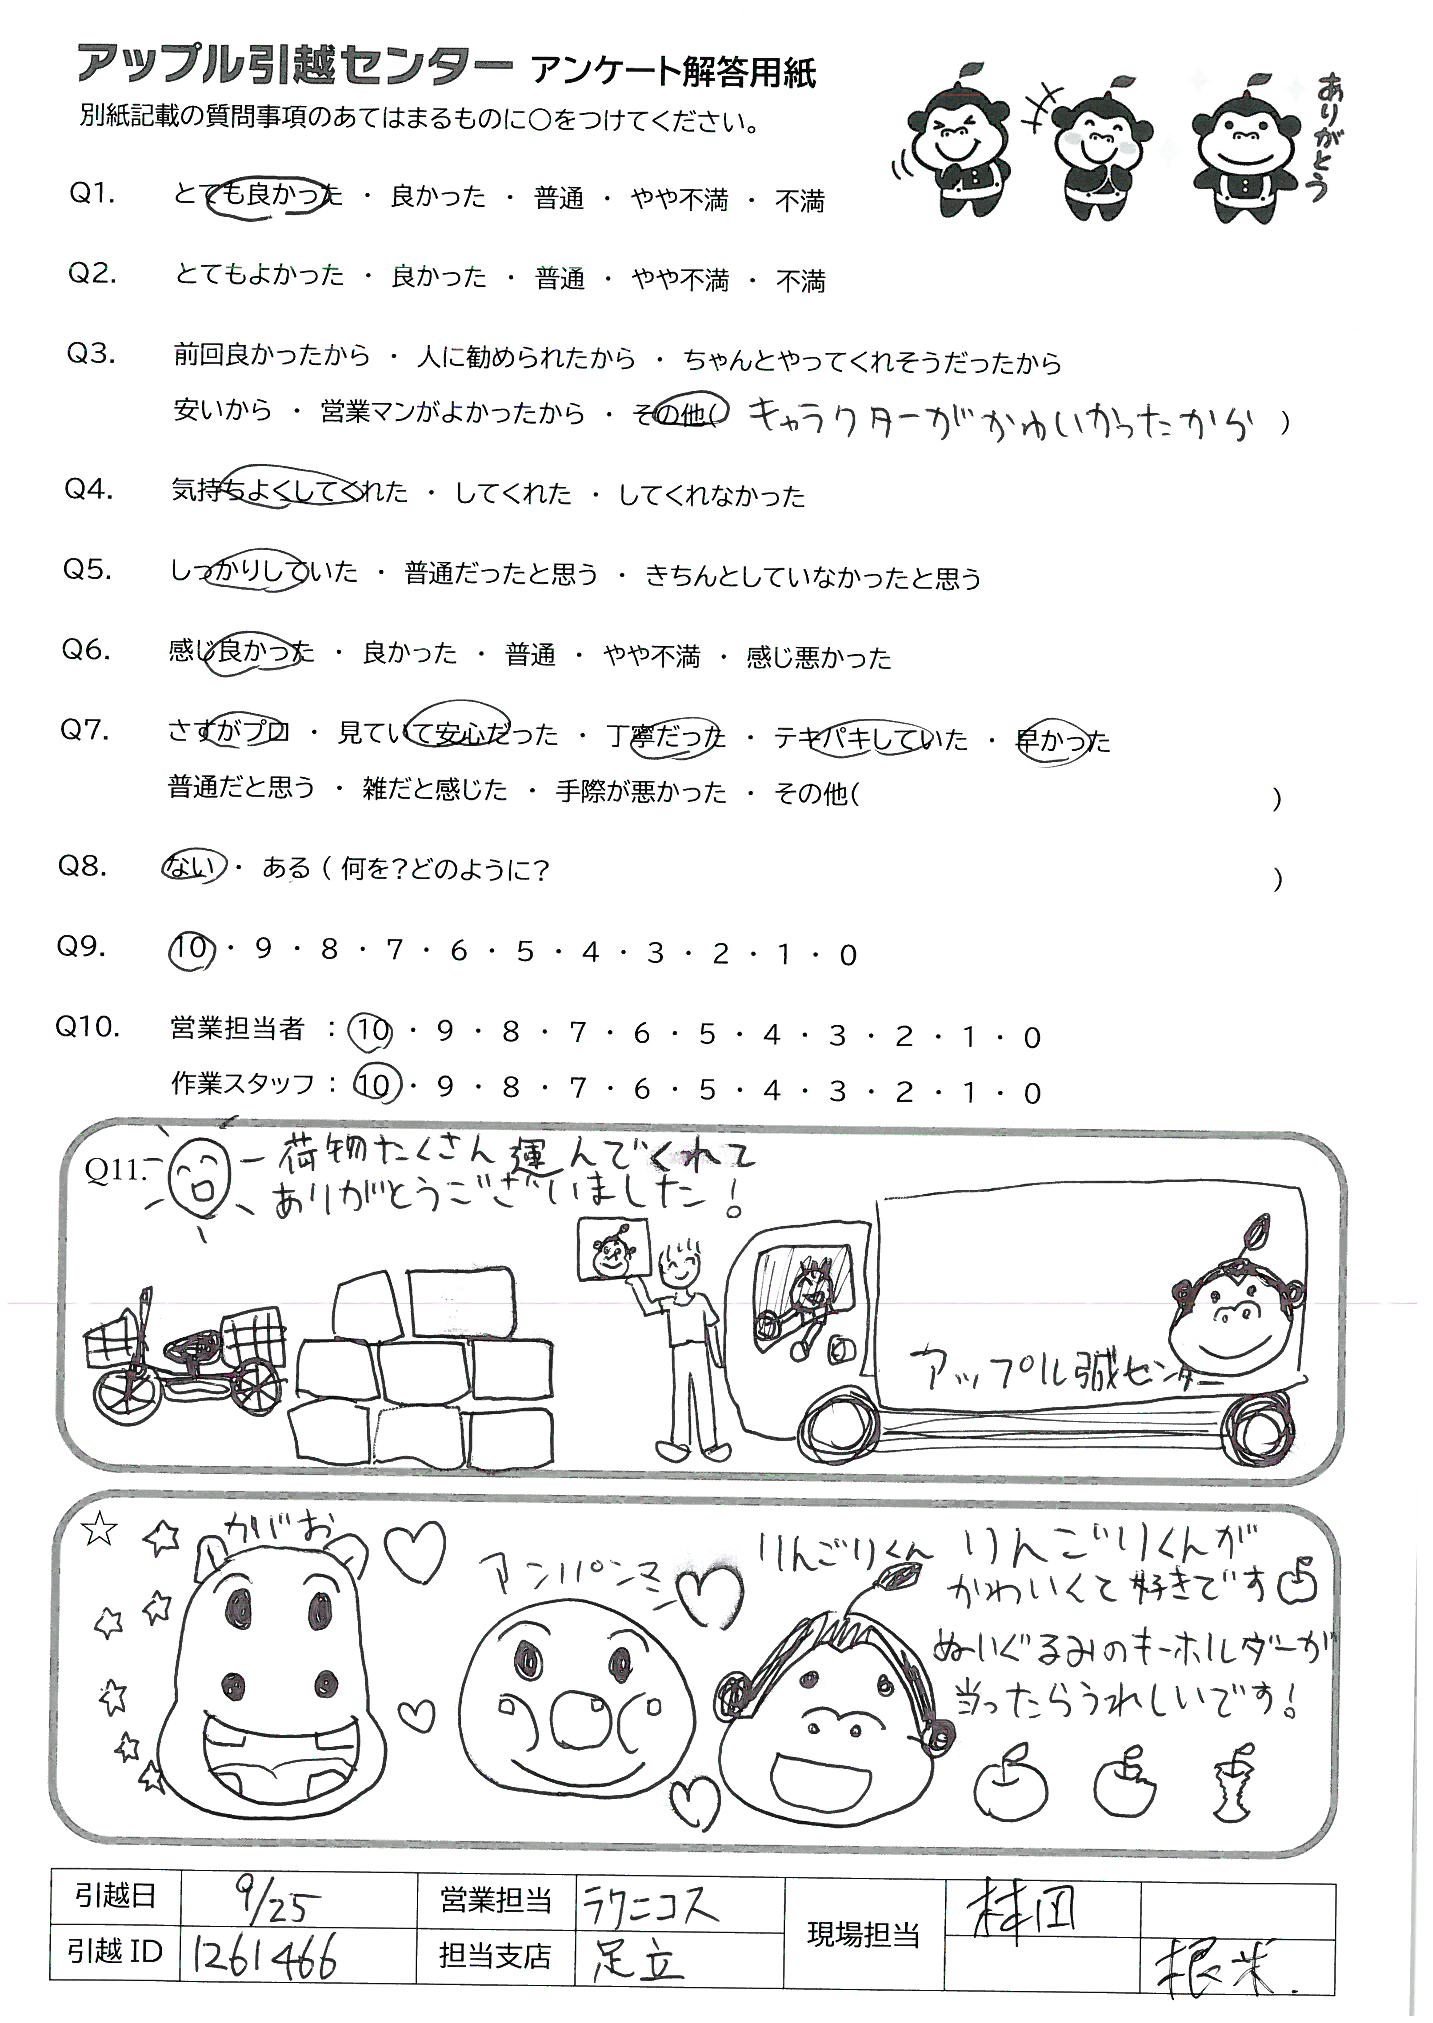 アップル引越センター アンケート解答用紙
別紙記載の質問事項のあてはまるものに〇をつけてください。
ありがとう
Q1. とても良かった ・ 良かった ・ 普通 ・ やや不満 ・ 不満
Q2. とてもよかった ・ 良かった ・ 普通 ・ やや不満 ・ 不満
Q3. 前回良かったから ・ 人に勧められたから ・ ちゃんとやってくれそうだったから
安いから ・ 営業マンがよかったから ・ その他( キャラクターがかわいかったから )
Q4. 気持ちよくしてくれた ・ してくれた ・ してくれなかった
Q5. しっかりしていた ・ 普通だったと思う ・ きちんとしていなかったと思う
Q6. 感じ良かった ・ 良かった ・ 普通 ・ やや不満 ・ 感じ悪かった
Q7. さすがプロ ・ 見ていて安心だった ・ 丁寧だった ・ テキパキしていた ・ 早かった
普通だと思う ・ 雑だと感じた ・ 手際が悪かった ・ その他( )
Q8. ない ・ ある ( 何を?どのように? )
Q9. 10 ・ 9 ・ 8 ・ 7 ・ 6 ・ 5 ・ 4 ・ 3 ・ 2 ・ 1 ・ 0
Q10. 営業担当者 : 10 ・ 9 ・ 8 ・ 7 ・ 6 ・ 5 ・ 4 ・ 3 ・ 2 ・ 1 ・ 0
作業スタッフ : 10 ・ 9 ・ 8 ・ 7 ・ 6 ・ 5 ・ 4 ・ 3 ・ 2 ・ 1 ・ 0
Q11. 荷物たくさん運んでくれて
ありがとうございました!
アップル センター
☆ かばお
アンパンマ
りんごりくん
りんごりくんが
かわいくて好きです
ぬいぐるみのキーホルダーが
当ったらうれしいです!
引越日 9/25 営業担当 ラクニコス 現場担当
引越ID 1261466 担当支店 足立